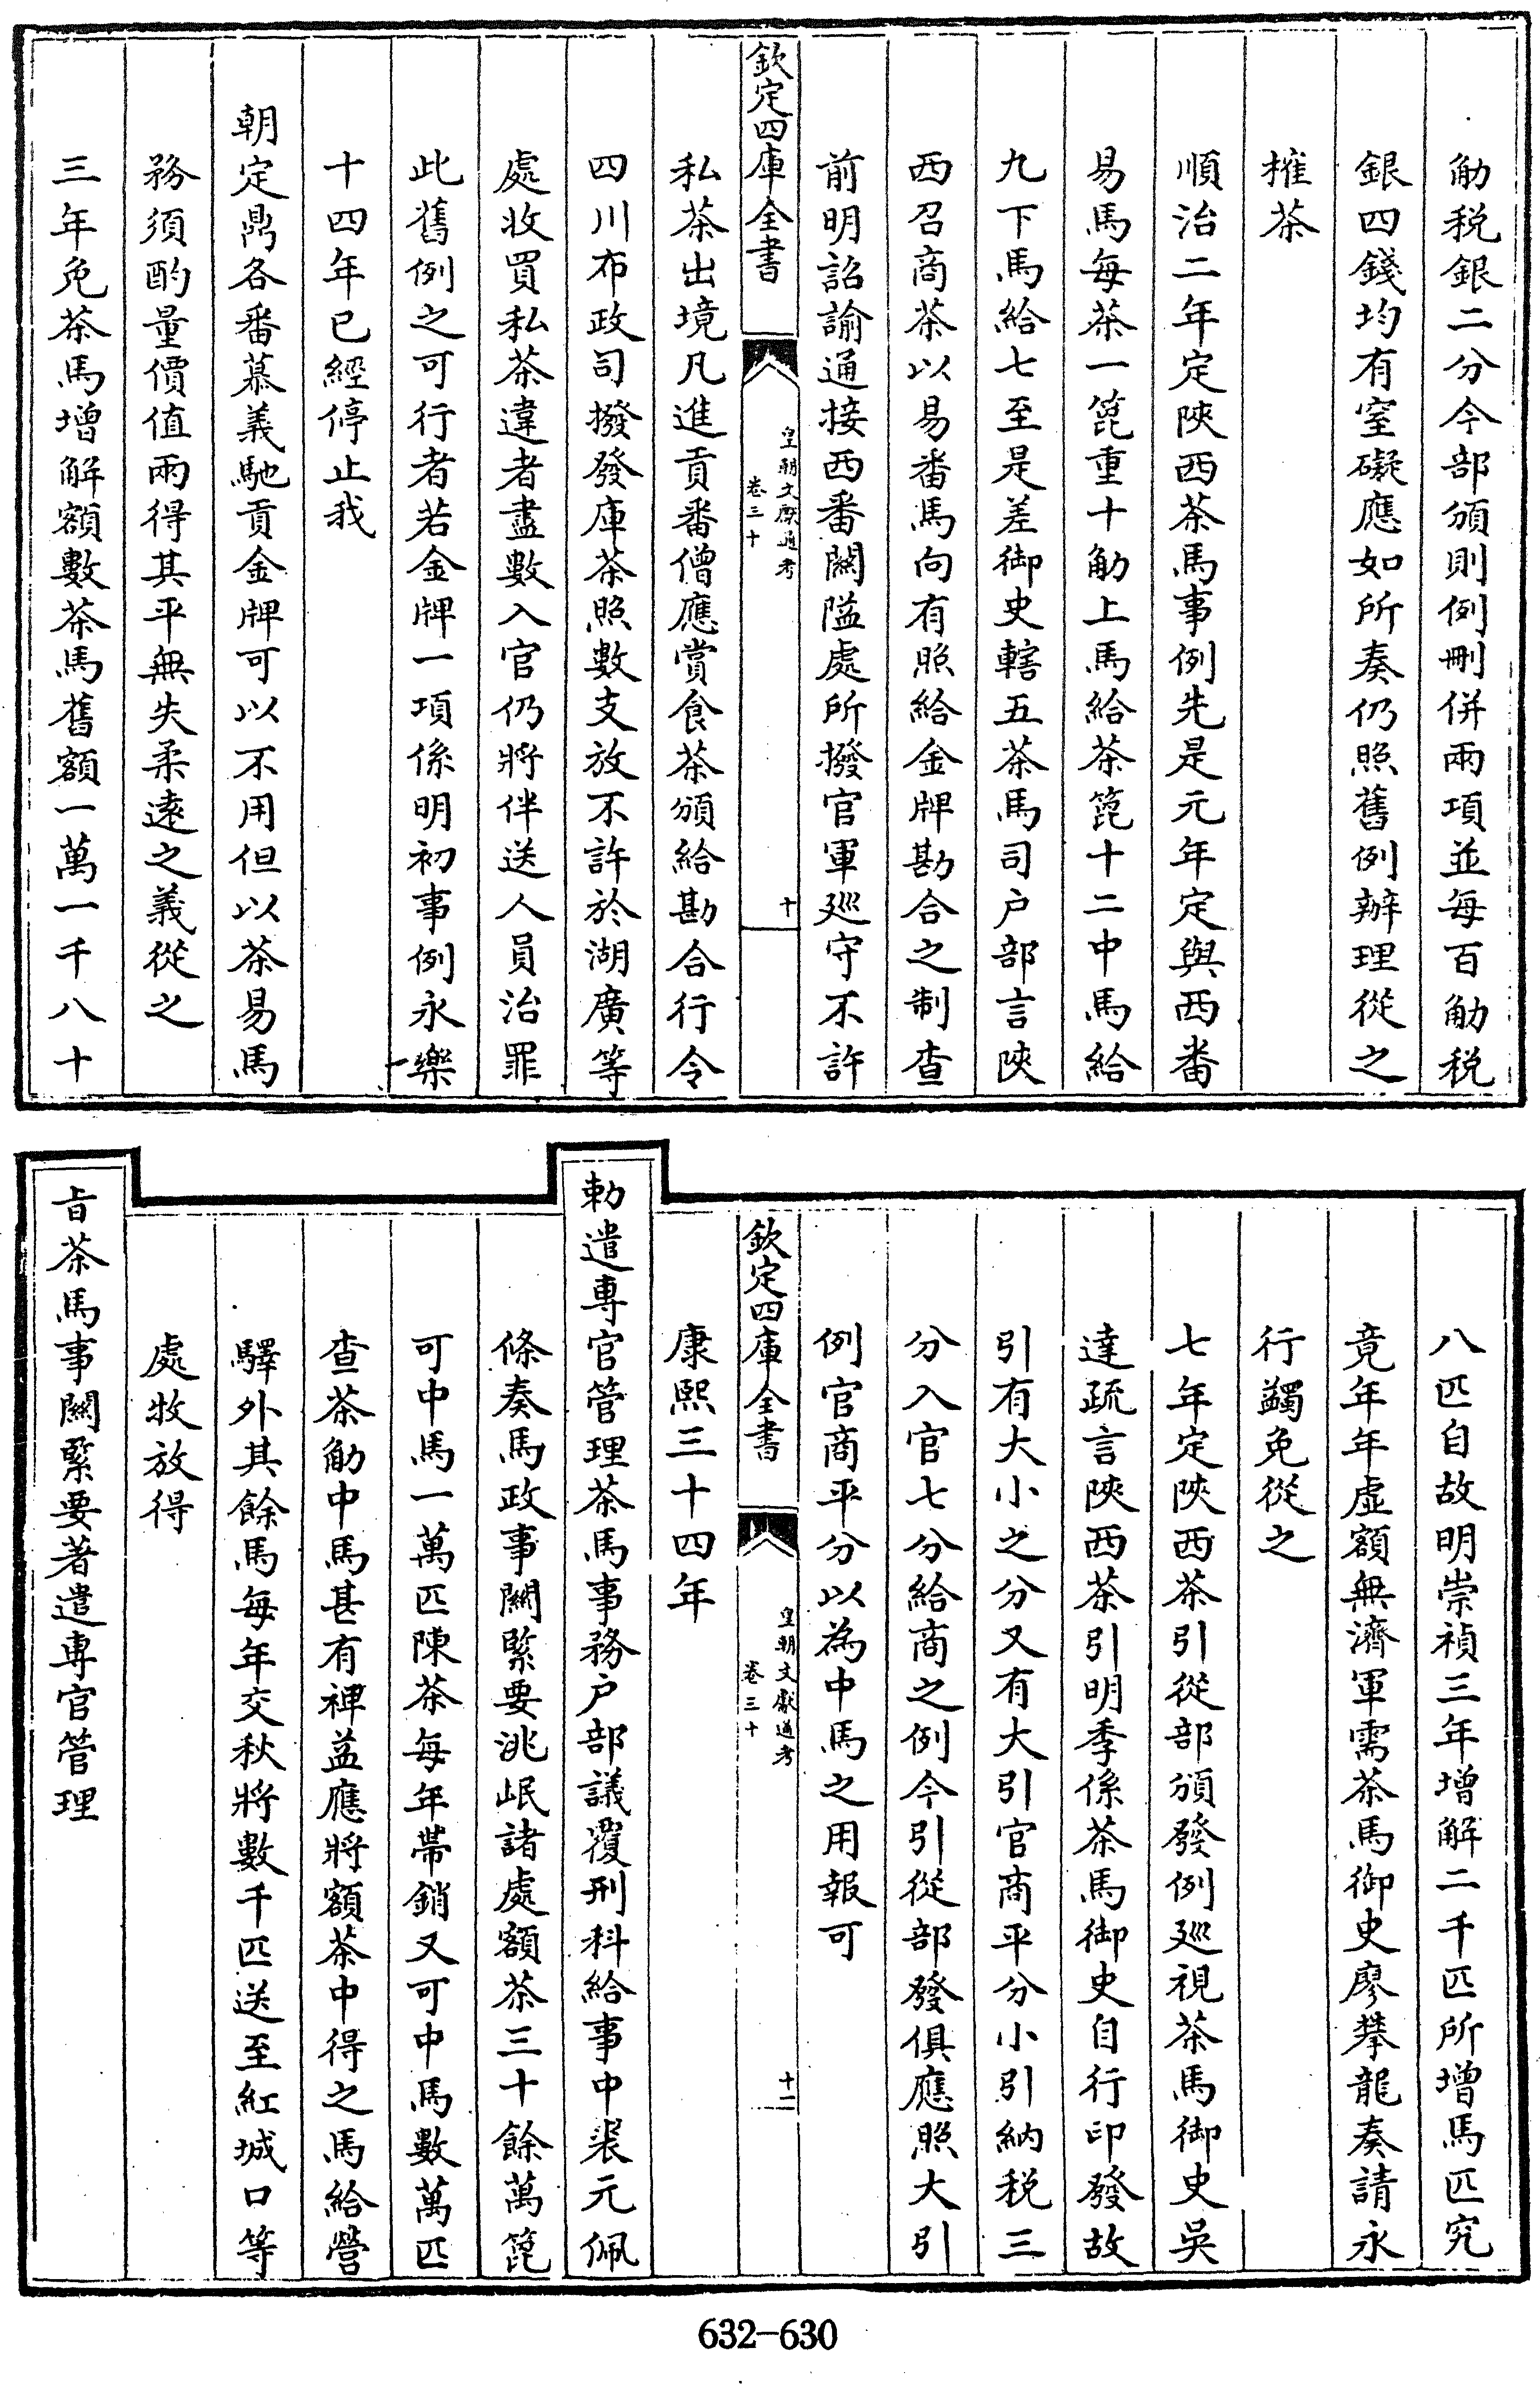 觔税銀二分今部頒則例刪併兩項並每百觔税
銀四錢均有窒礙應如所奏仍照舊例辦理從之
榷茶
順治二年定陜西茶馬事例先是元年定與西畨
易馬每茶一篦重十觔上馬給茶篦十二中馬給
九下馬給七至是差御史轄五茶馬司户部言陜
西召商茶以易畨馬向有照給金牌勘合之制查
前明詔諭通接西番闗隘處所撥官軍廵守不許
欽定四庫全書
皇朝文獻通考
卷三十
十
私茶出境凡進貢番僧應賞食茶頒給勘合行令
四川布政司撥發庫茶照數支放不許於湖廣等
處收買私茶違者盡數入官仍將伴送人員治罪
此舊例之可行者若金牌一項係明初事例永樂
十四年已經停止我
朝定鼎各番慕義馳貢金牌可以不用但以茶易馬
務須酌量價值兩得其平無失柔逺之義從之
三年免茶馬增解額數茶馬舊額一萬一千八十
八匹自故明崇禎三年增解二千匹所增馬匹究
竟年年虛額無濟軍需茶馬御史廖攀龍奏請永
行蠲免從之
七年定陜西茶引從部頒發例廵視茶馬御史吳
達疏言陜西茶引明季係茶馬御史自行印發故
引有大小之分又有大引官商平分小引納税三
分入官七分給商之例今引從部發俱應照大引
例官商平分以為中馬之用報可
欽定四庫全書
皇朝文獻通考
卷三十
十一
康熙三十四年
勅遣專官管理茶馬事務户部議覆刑科給事中裘元佩
條奏馬政事闗緊要洮岷諸處額茶三十餘萬篦
可中馬一萬匹陳茶每年帶銷又可中馬數萬匹
查茶觔中馬甚有裨益應將額茶中得之馬給營
驛外其餘馬每年交秋將數千匹送至紅城口等
處牧放得
㫖茶馬事闗緊要著遣專官管理
632-630